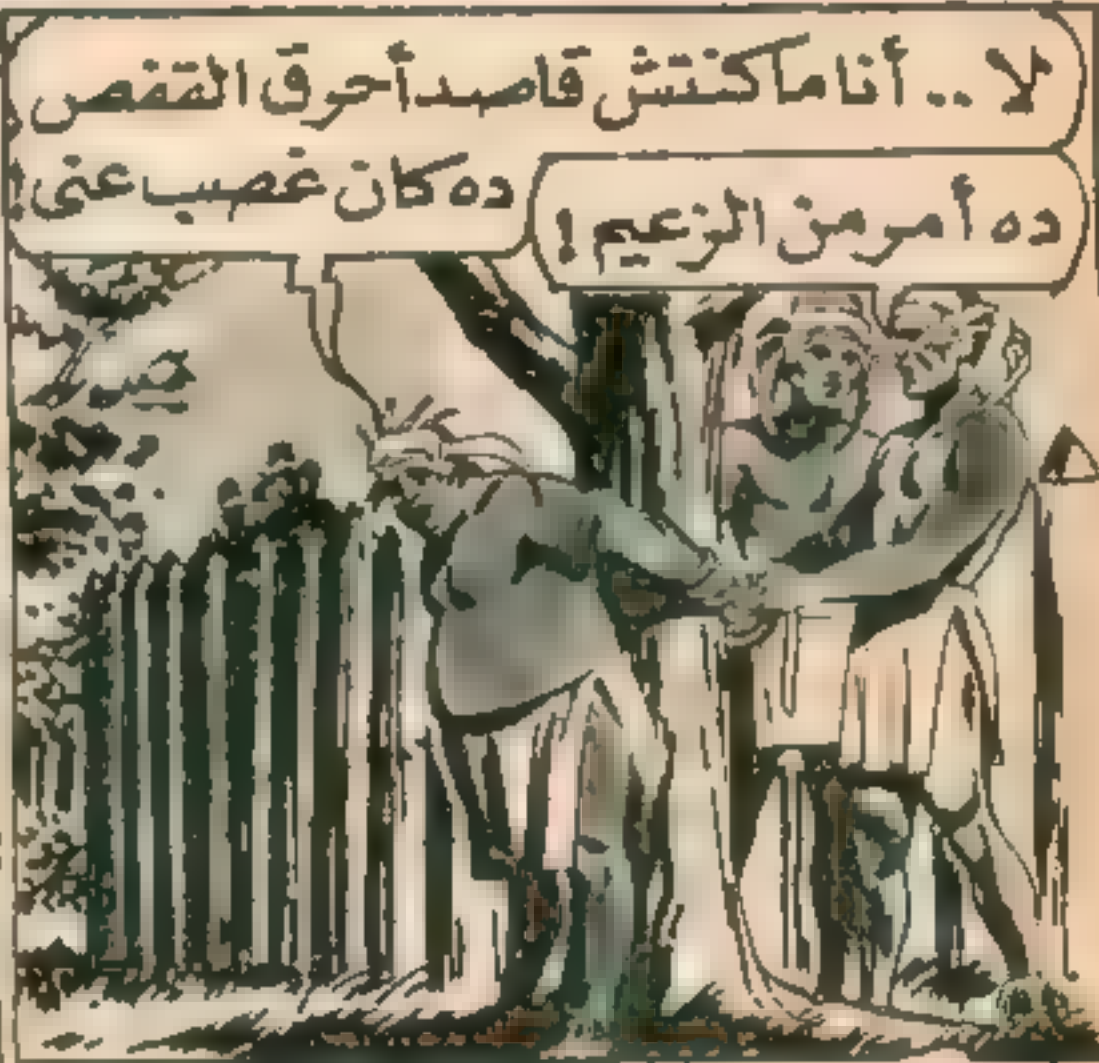 لا .. أنا ما كنتش قاصد أحرق القفص
ده كان غصب عنى !
ده أمر من الزعيم !